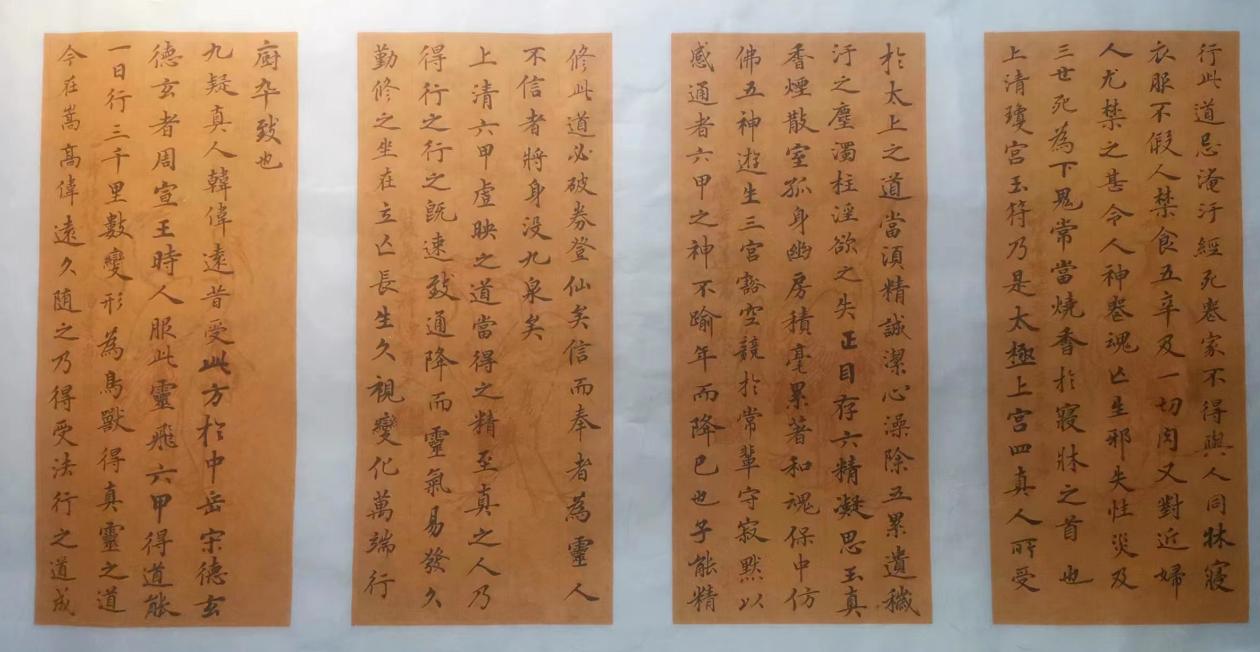 行此道忌淹汙經死喪家不得與人同牀寢
衣服不假人禁食五辛及一切肉又對近婦
人尤禁之甚令人神喪魂亡生邪失性災及
三世死為下鬼常當燒香於寢牀之首也
上清瓊宮玉符乃是太極上宮四真人所受
於太上之道當須精誠潔心澡除五累遺穢
汙之塵濁杜淫欲之失正目存六精凝思玉真
香煙散室孤身幽房積毫累著和魂保中仿
佛五神遊生三宮豁空競於常輩守寂默以
感通者六甲之神不踰年而降已也子能精
修此道必破券登仙矣信而奉者為靈人
不信者將身没九泉矣
上清六甲虛映之道當得之精至真之人乃
得行之行之既速致通降而靈氣易發久
勤修之坐在立亡長生久視變化萬端行
廚卒致也
九疑真人韓偉遠昔受此方於中岳宋德玄
德玄者周宣王時人服此靈飛六甲得道能
一日行三千里數變形為鳥獸得真靈之道
今在嵩高偉遠久随之乃得受法行之道成